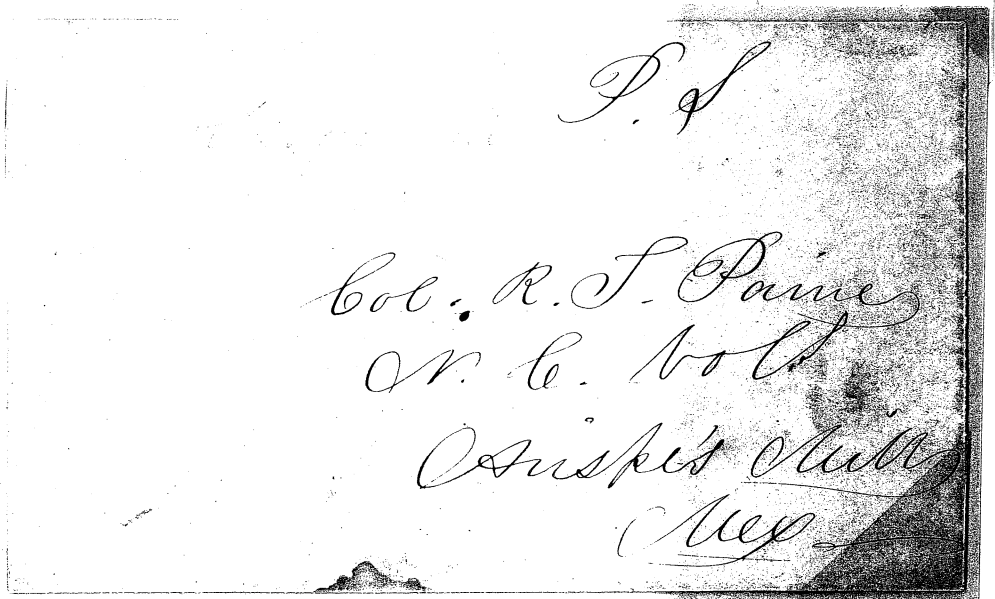 P. S
Col. R. T. Paine
N. C. Vols
Arispe's Mills
Mex